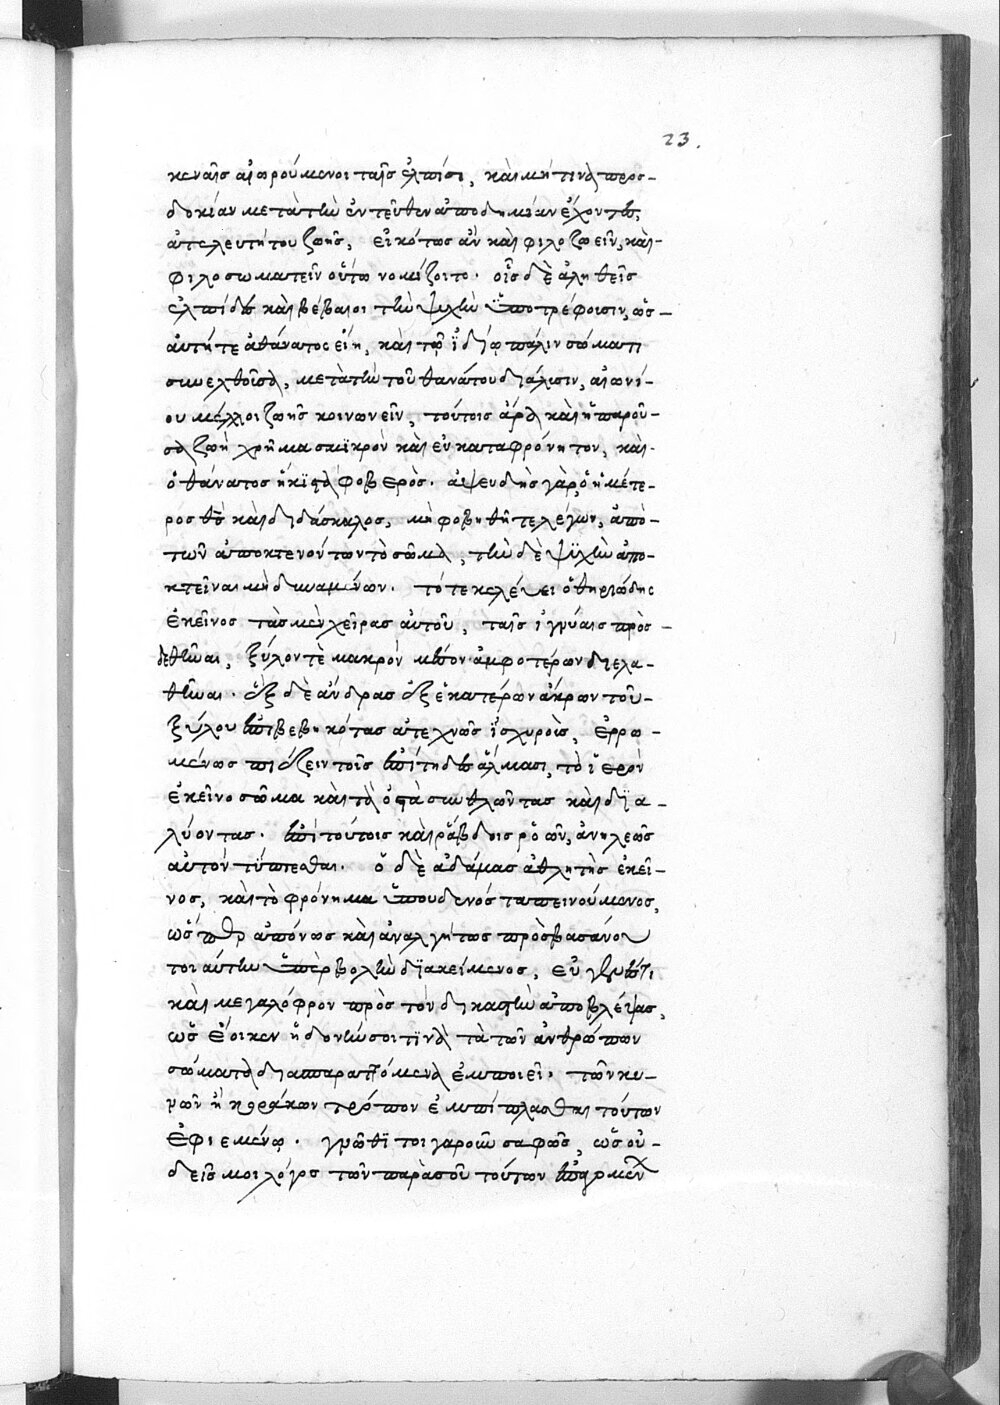 23.
κεναῖς αἰωρούμενοι ταῖς ἐλπίσι, καὶ μή τινα προσ-
δοκίαν μετὰ τὴν ἐντεῦθεν ἀποδημίαν ἔχοντες
ἀτελευτήτου ζωῆς, εἰκότως ἂν καὶ φιλοζωεῖν, καὶ-
φιλοσωματεῖν οὕτω νομίζοιτο. οἷς δὲ ἀληθεῖς
ἐλπίδες καὶ βέβαιοι τὴν ψυχὴν ὑποτρέφοισιν, ὡς-
αὐτή τε ἀθάνατος εἴη, καὶ τῷ ἰδίῳ πάλιν σώματι
συνελθοῦσα, μετὰ τὴν τοῦ θανάτου διάλυσιν, αἰωνί-
ου μέλλοι ζωῆς κοινωνεῖν, τούτοις ἄρα καὶ ἡ παροῦ-
σα ζωὴ χρῆμα σμικρὸν καὶ εὐκαταφρόνητον, καὶ-
ὁ θάνατος ἥκιστα φοβερός. ἀψευδὴς γὰρ, ὁ ἡμέτε-
ρος θς καὶ διδάσκαλος, μὴ φοβηθῆτε λέγων, ἀπὸ-
τῶν ἀποκτενόντων τὸ σῶμα, τὴν δὲ ψυχὴν ἀπο-
κτεῖναι μὴ δυναμένων. τότε κελεύει ὁ θηριώδης
ἐκεῖνος τὰς μὲν χεῖρας αὐτοῦ, ταῖς ἰγνύαις προσ-
δεθῆναι, ξύλον τὲ μακρὸν μέσον ἀμφοτέρων διελα-
θῆναι. ἓξ δὲ ἄνδρας ἐξ ἑκατέρων ἄκρων τοῦ-
ξύλου ἐπιβεβηκότας ἀτεχνῶς ἰσχυροὺς, ἐρρω-
μένως πιέζειν τοῖς ἐπίτηδες ἅλμασι, τὸ ἱερὸν
ἐκεῖνο σῶμα καὶ τὰ ὀστᾶ συνθλῶντας καὶ δια-
λύοντας. ἐπὶ τούτοις καὶ ῥάβδοις ῥοῶν, ἀνηλεῶς
αὐτὸν τύπτεσθαι. ὁ δὲ ἀδάμας ἀθλητὴς ἐκεῖ-
νος, καὶ τὸ φρόνημα ὑπ' οὐδενός ταπεινούμενος,
ὥσπερ ἀπόνως καὶ ἀναλγήτως πρὸς βασάνου
τοιαύτην ὑπερβολὴν διακείμενος, εὐγενές τι
καὶ μεγαλόφρον πρὸς τὸν δικαστὴν ἀποβλέψας,
ὡς ἔοικεν ἡδονήν σοι τινὰ τὰ τῶν ἀνθρώπων
σώματα διασπαραττόμενα ἐμποιεῖ. τῶν κυ-
νῶν ἢ κοράκων τρόπον ἐμπίπλασθαι τούτων
ἐφιεμένῳ. γνῶθι τοιγαροῦν σαφῶς, ὡς οὐ-
δείς μοι λόγος τῶν παρὰ σοῦ τούτων